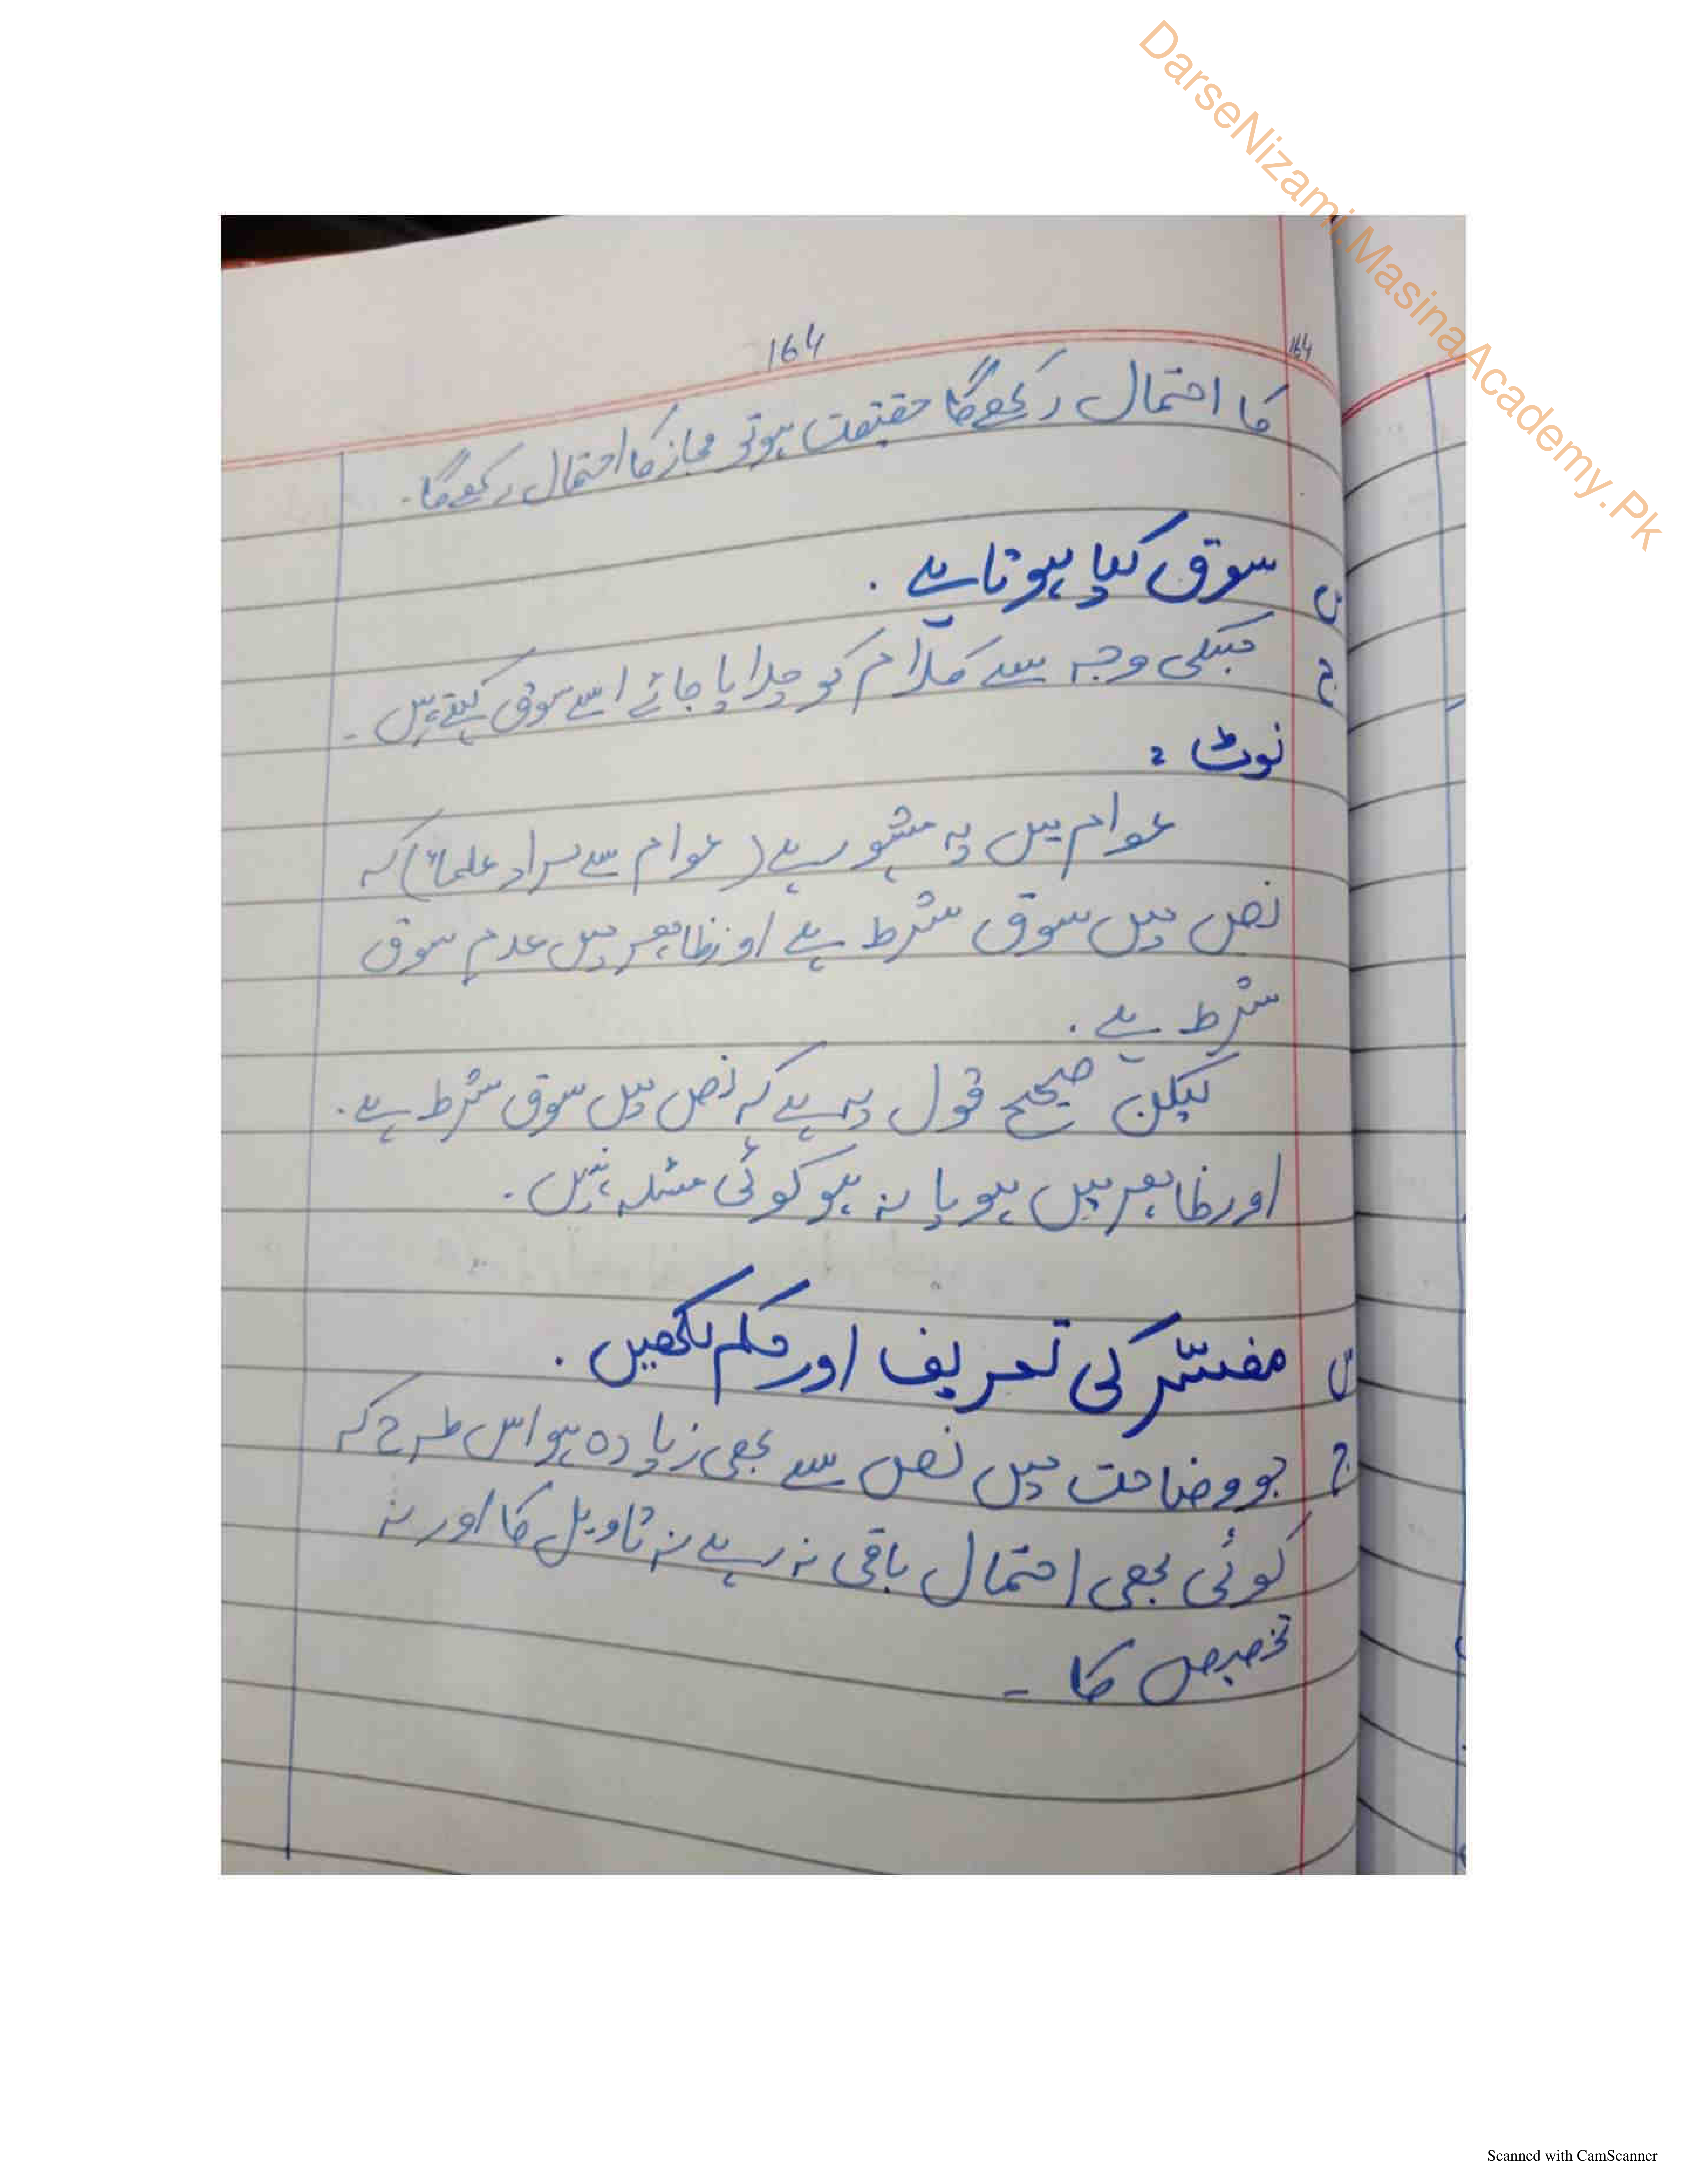 DarseNizami.MasinaAcademy.Pk
164
164
کا احتمال رکھےگا حقیقت ہوتو مجاز کا احتمال رکھےگا۔
س سوق کیا ہوتا ہے ۔
ج جسکی وجہ سے کلام کو چلایا جائے اسے سوق کہتے ہیں ۔
نوٹ :
عوام میں یہ مشہور ہے (عوام سے مراد علماء) کہ
نص میں سوق شرط ہے اور ظاہر میں عدم سوق
شرط ہے ۔
لیکن صحیح قول یہ ہے کہ نص میں سوق شرط ہے ۔
اور ظاہر میں ہو یا نہ ہو کوئی مسئلہ نہیں ۔
س مفسّر کی تعریف اور حکم لکھیں ۔
ج جو وضاحت میں نص سے بھی زیادہ ہو اس طرح کہ
کوئی بھی احتمال باقی نہ رہے نہ تاویل کا اور نہ
تخصیص کا ۔
Scanned with CamScanner